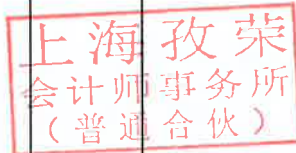 上海孜荣
会计师事务所
（普通合伙）